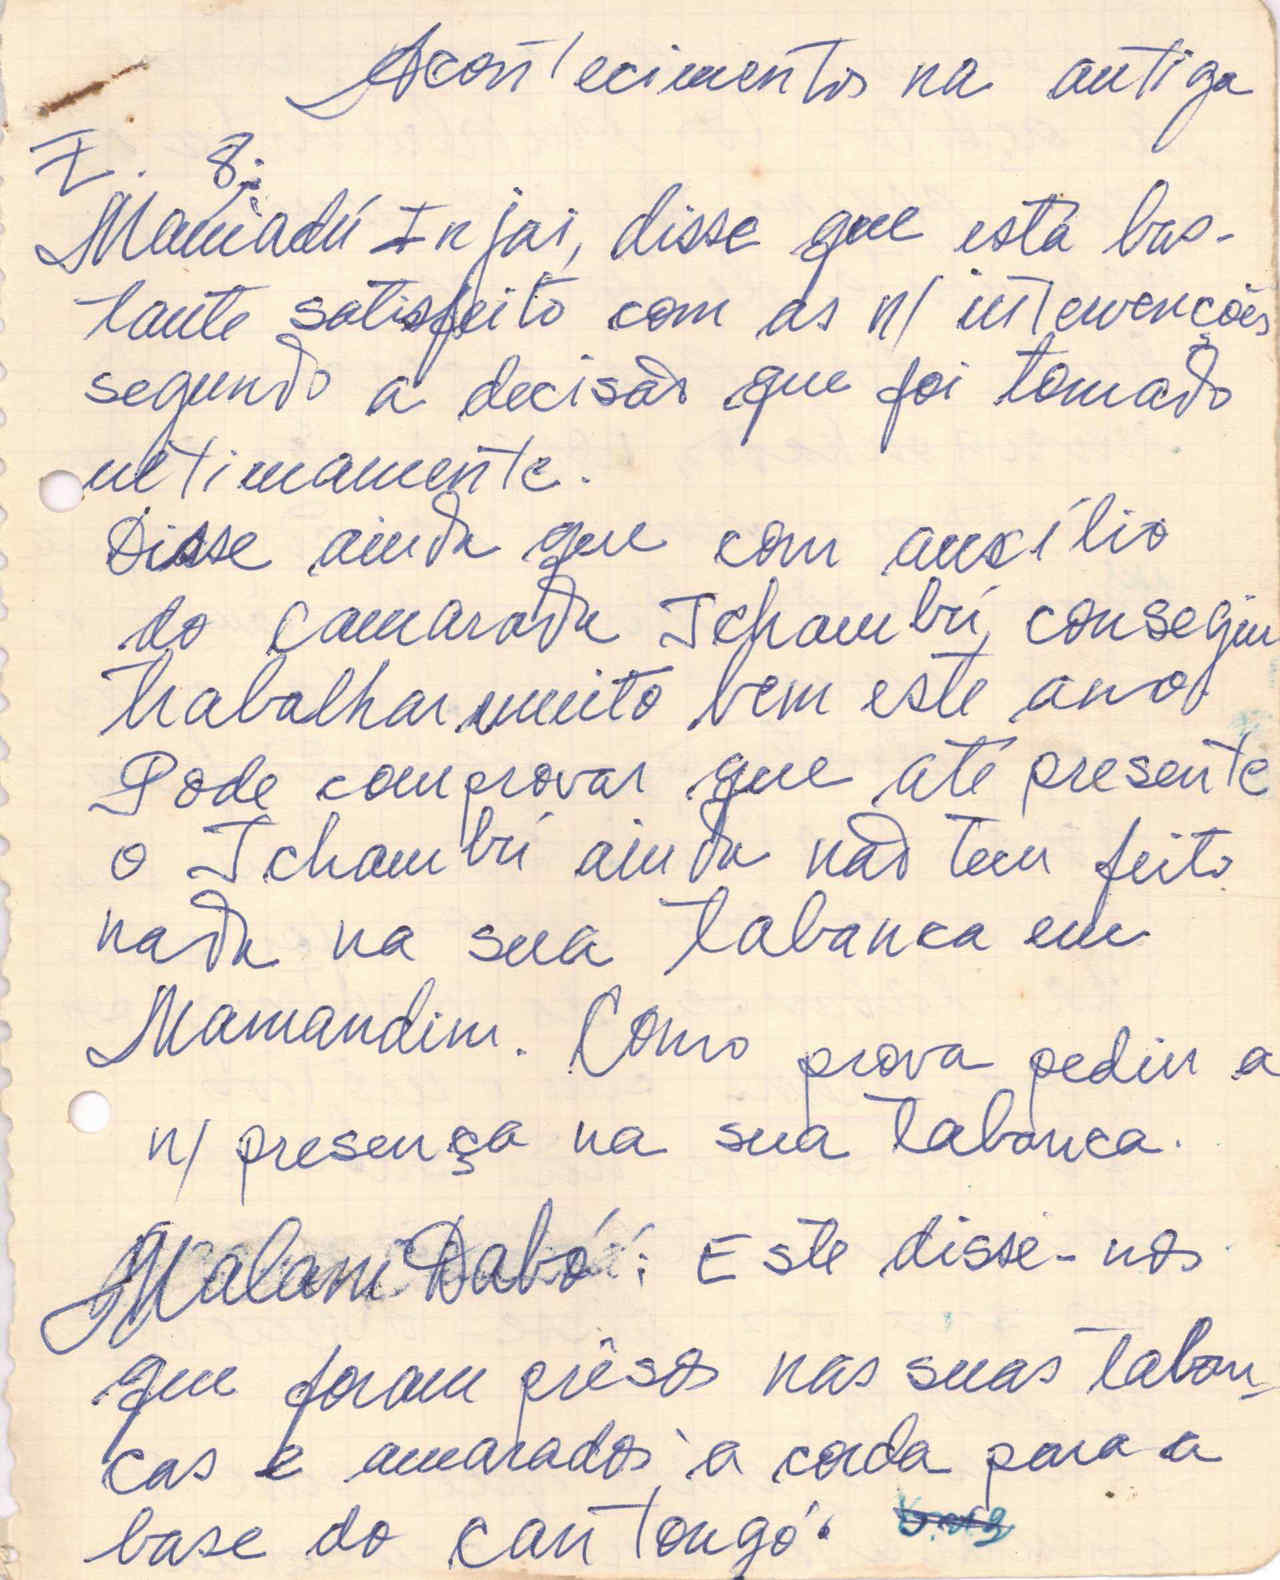 Acontecimentos na antiga
Z. 8:
Mamadú Injai, disse que está bas-
tante satisfeito com as n/ intervenções
segundo a decisão que foi tomado
ultimamente.
Disse ainda que com auxílio
do camarada Tchambú, conseguiu
trabalhar muito bem este ano.
Pode comprovar que até presente
o Tchambú ainda não tem feito
nada na sua tabanca em
Mamandim. Como prova pediu a
n/ presença na sua tabanca.
Malam Dabó: Este disse-nos
que foram prêsos nas suas taban-
cas e amarados à corda para a
base do cantongó.